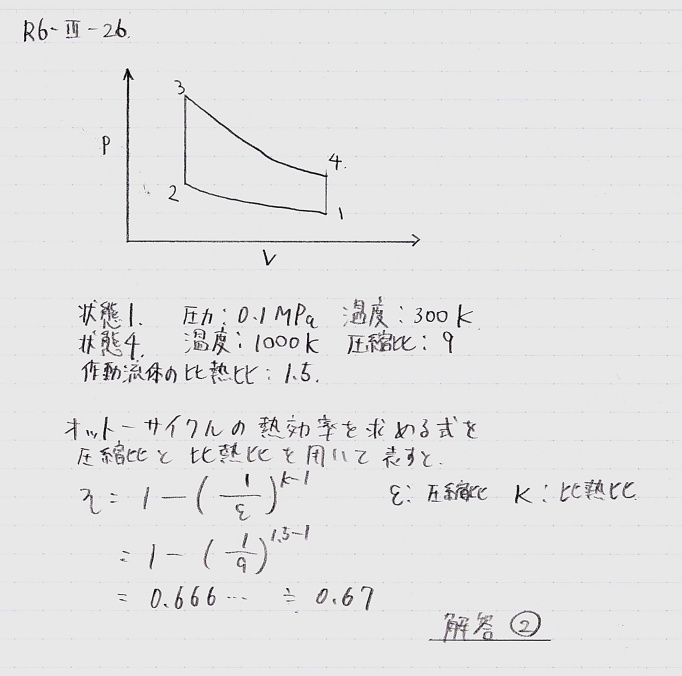 R6-Ⅲ-26.
3
P
4.
2
1
V
状態1. 圧力:0.1MPa 温度:300K
状態4. 温度:1000K 圧縮比:9
作動流体の比熱比:1.5.
オットーサイクルの熱効率を求める式を
圧縮比と比熱比を用いて表すと.
η = 1 - (1/ε)^(K-1) ε:圧縮比 K:比熱比
= 1 - (1/9)^(1.5-1)
= 0.666… ≒ 0.67
解答②